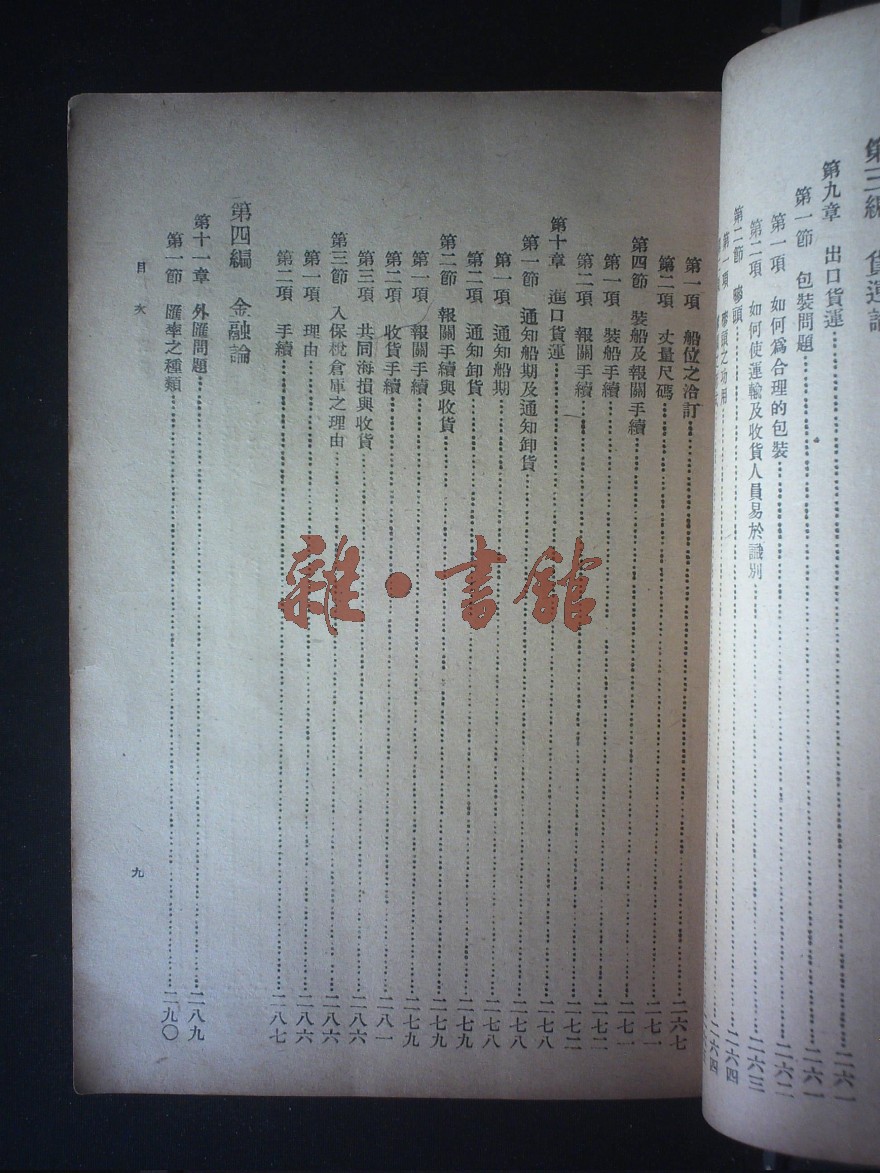 第三編　貨運論
第九章　出口貨運……二六一
第一節　包裝問題……二六一
第一項　如何爲合理的包裝……二六二
第二項　如何使運輸及收貨人員易於識別……二六三
第二節　嘜頭……二六四
第一項　嘜頭之功用……二六四
第一項　船位之洽訂……二六七
第二項　丈量尺碼……二七一
第四節　裝船及報關手續……二七一
第一項　裝船手續……二七二
第二項　報關手續……二七二
第十章　進口貨運……二七八
第一節　通知船期及通知卸貨……二七八
第一項　通知船期……二七八
第二項　通知卸貨……二七九
第二節　報關手續與收貨……二七九
第一項　報關手續……二七九
第二項　收貨手續……二八一
第三項　共同海損與收貨……二八六
第三節　入保稅倉庫之理由……二八六
第一項　理由……二八六
第二項　手續……二八七
第四編　金融論
第十一章　外匯問題……二八九
第一節　匯率之種類……二九〇
目次
九
雜·書館